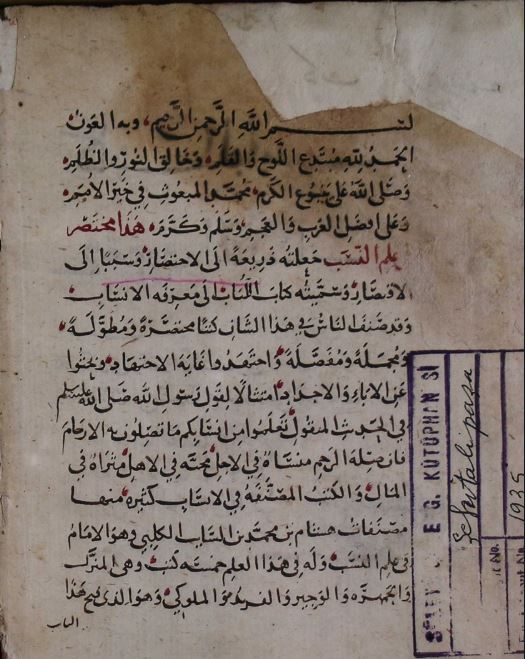 بسم الله الرحمن الرحيم وبه العون
الحمد لله مبتدع اللوح والقلم وخالق النور والظلم
وصلى الله على ينبوع الكرم محمد المبعوث في خير الامم
وعلى افضل العرب والعجم وسلم وكرم هذا مختصر
علم النسب جعلته ذريعة الى الاختصار وسببا الى
الاقتصار وسميته كتاب اللباب الى معرفة الانساب
وقد صنف الناس في هذا الشان كتبا مختصرة ومطولة
ومجملة ومفصلة واجتهدوا غاية الاجتهاد وبحثوا
عن الاباء والاجداد امتثالا لقول رسول الله صلى الله عليه وسلم
في الحديث المنقول تعلموا من انسابكم ما تصلون به الارحام
فان صلة الرحم منساة في الاجل محبة في الاهل مثراة في
المال والكتب المصنفة في الانساب كثيرة منها
مصنفات هشام بن محمد بن السائب الكلبي وهو الامام
في علم النسب وله في هذا العلم خمسة كتب وهي المنزل
والجمهرة والوجيز والفريد والملوكي وهو الذي فتح هذا
الباب
E G. KÜTÜPHANESİ
Reşit Paşa
No.
1925